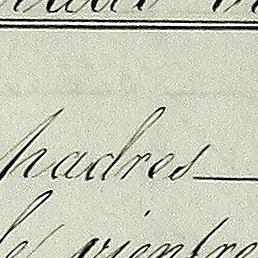 padres
de vientre